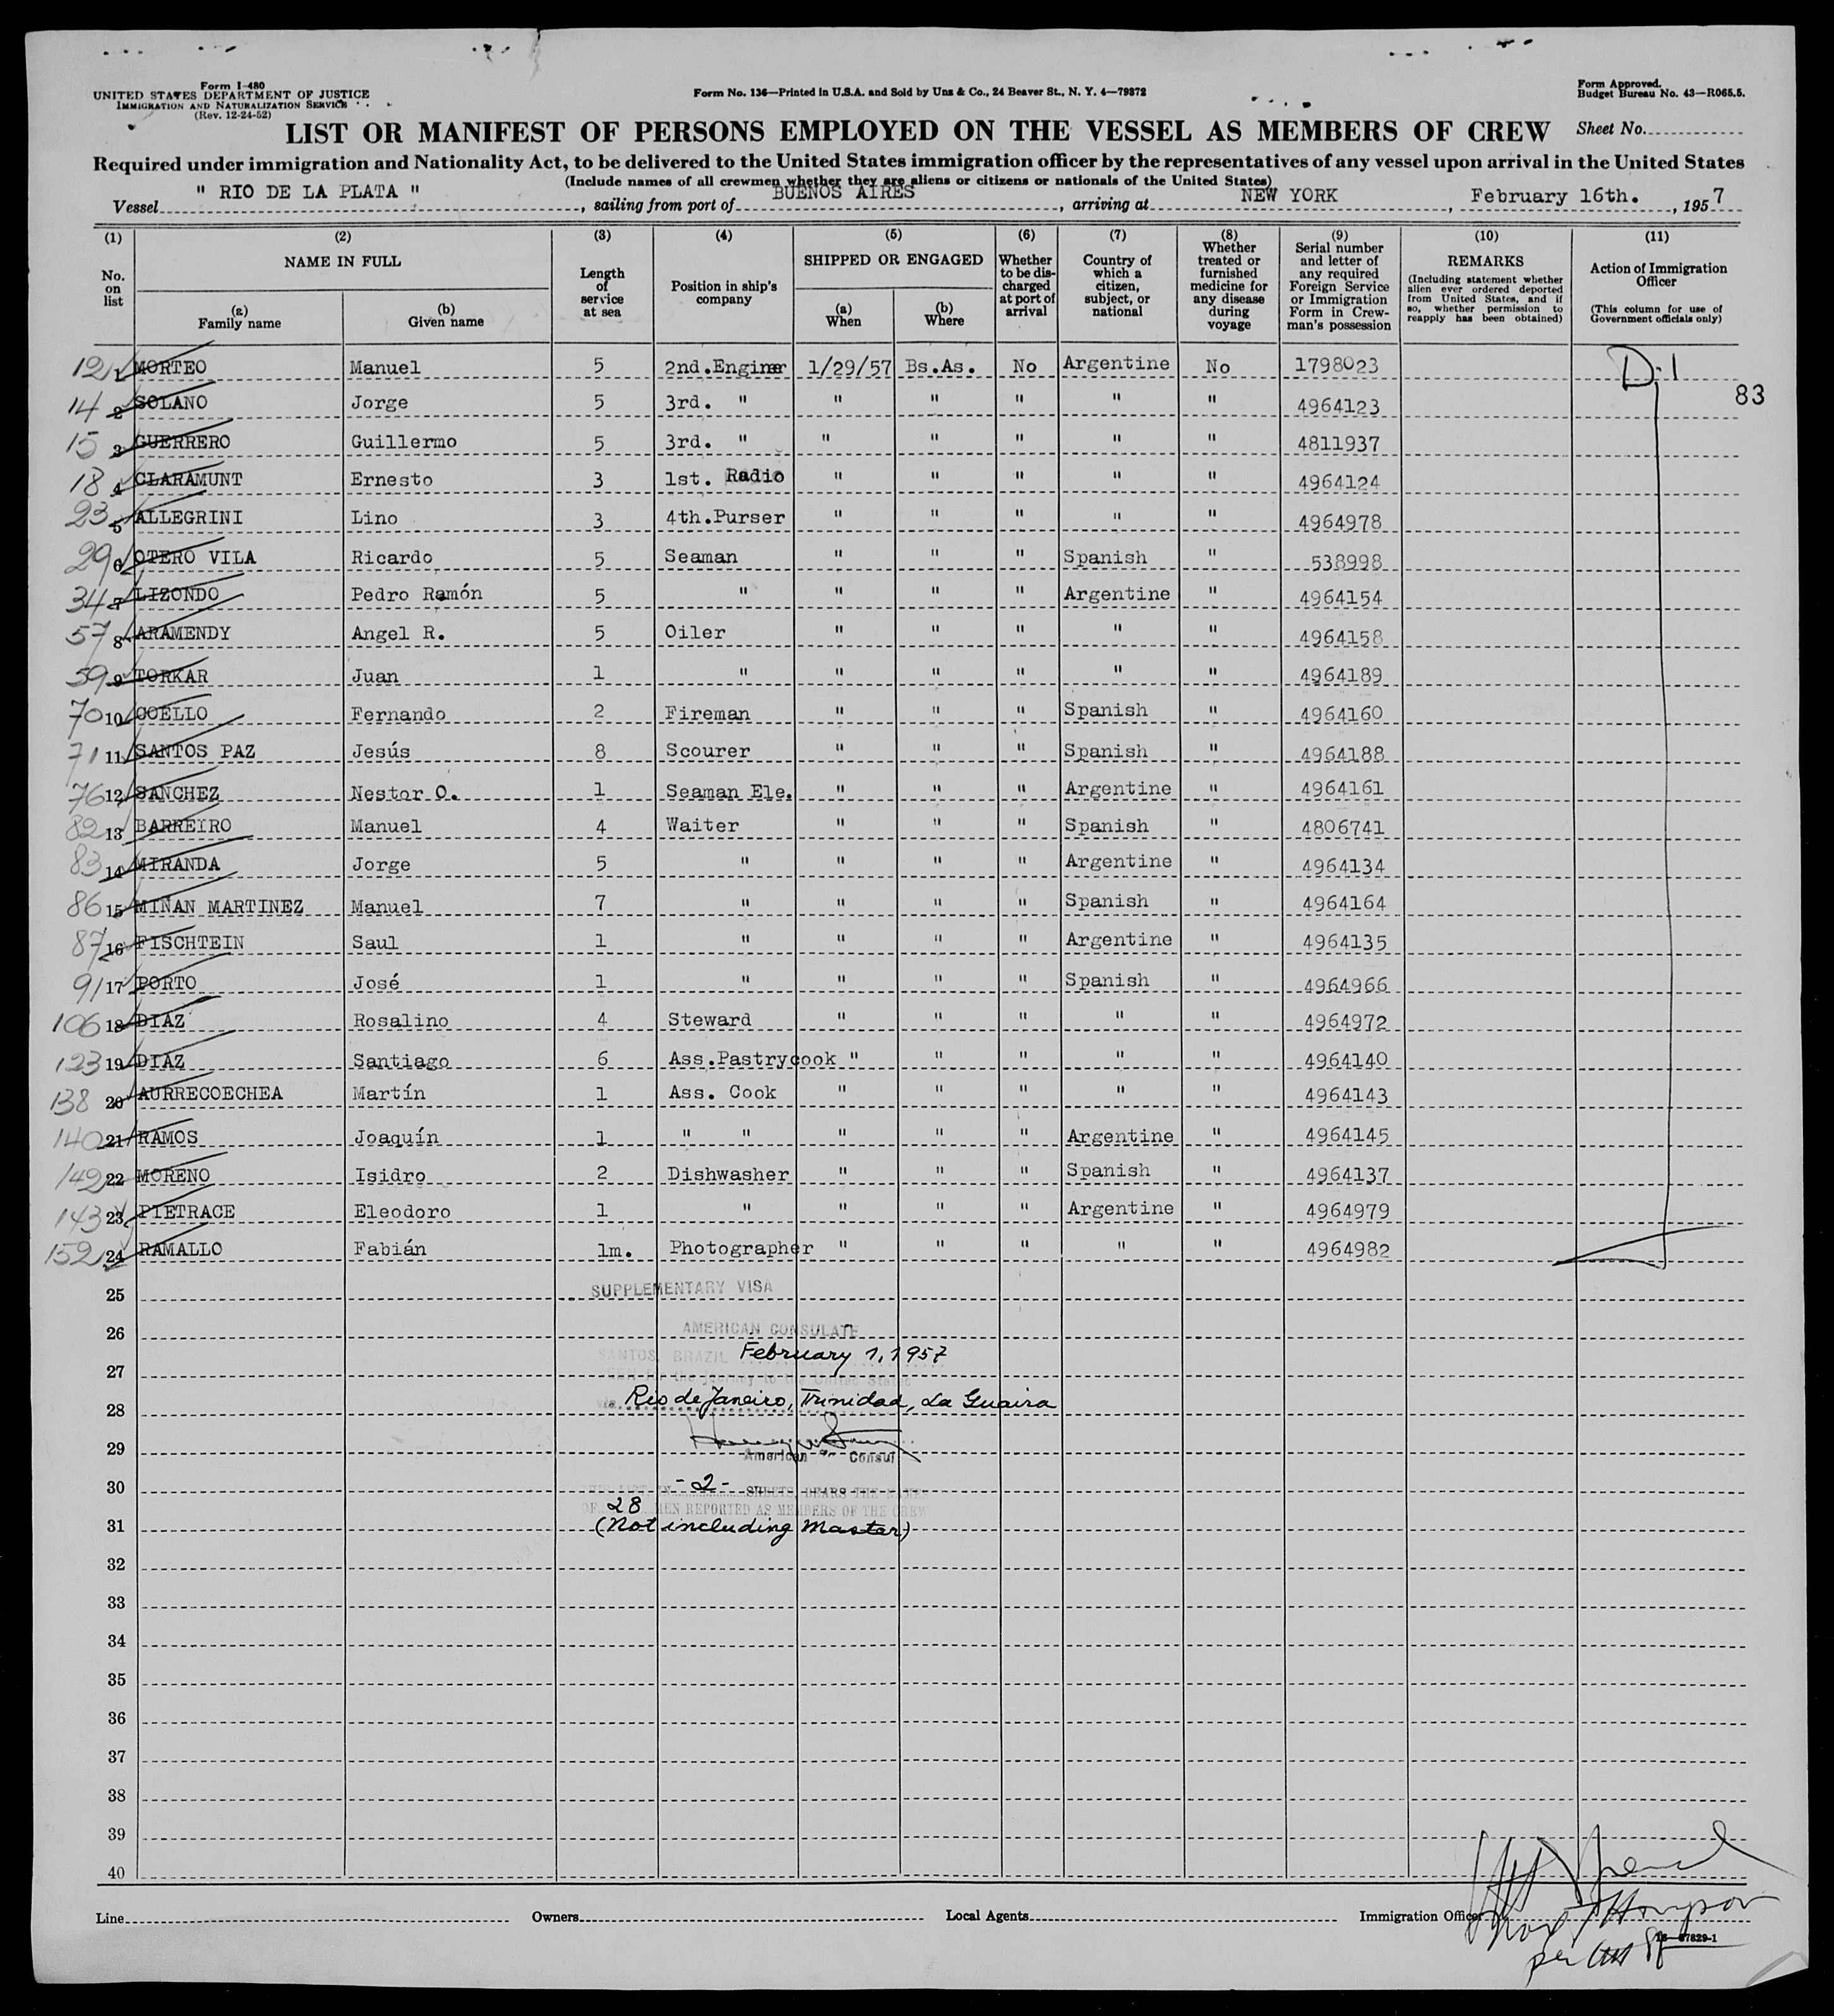 Form I-480
UNITED STATES DEPARTMENT OF JUSTICE
IMMIGRATION AND NATURALIZATION SERVICE
(Rev. 12-24-52)
Form No. 136—Printed in U.S.A. and Sold by Unz & Co., 24 Beaver St., N. Y. 4—79372
Form Approved.
Budget Bureau No. 43—R065.5.
LIST OR MANIFEST OF PERSONS EMPLOYED ON THE VESSEL AS MEMBERS OF CREW Sheet No.
Required under immigration and Nationality Act, to be delivered to the United States immigration officer by the representatives of any vessel upon arrival in the United States
(Include names of all crewmen whether they are aliens or citizens or nationals of the United States)
Vessel " RIO DE LA PLATA " , sailing from port of BUENOS AIRES , arriving at NEW YORK , February 16th. , 1957
(1) No. on list
(2) NAME IN FULL
(a) Family name
(b) Given name
(3) Length of service at sea
(4) Position in ship's company
(5) SHIPPED OR ENGAGED
(a) When
(b) Where
(6) Whether to be discharged at port of arrival
(7) Country of which a citizen, subject, or national
(8) Whether treated or furnished medicine for any disease during voyage
(9) Serial number and letter of any required Foreign Service or Immigration Form in Crewman's possession
(10) REMARKS
(Including statement whether alien ever ordered deported from United States, and if so, whether permission to reapply has been obtained)
(11) Action of Immigration Officer
(This column for use of Government officials only)
12 1 MORTEO Manuel 5 2nd.Enginer 1/29/57 Bs.As. No Argentine No 1798023 D-1
83
14 2 SOLANO Jorge 5 3rd. " " " " " " 4964123
15 3 GUERRERO Guillermo 5 3rd. " " " " " " 4811937
18 4 CLARAMUNT Ernesto 3 1st. Radio " " " " " 4964124
23 5 ALLEGRINI Lino 3 4th.Purser " " " " " 4964978
29 6 OTERO VILA Ricardo 5 Seaman " " " Spanish " 538998
34 7 LIZONDO Pedro Ramón 5 " " " " Argentine " 4964154
57 8 ARAMENDY Angel R. 5 Oiler " " " " " 4964158
59 9 TORKAR Juan 1 " " " " " " 4964189
70 10 COELLO Fernando 2 Fireman " " " Spanish " 4964160
71 11 SANTOS PAZ Jesús 8 Scourer " " " Spanish " 4964188
76 12 SANCHEZ Nestor O. 1 Seaman Ele. " " " Argentine " 4964161
82 13 BARREIRO Manuel 4 Waiter " " " Spanish " 4806741
83 14 MIRANDA Jorge 5 " " " " Argentine " 4964134
86 15 MIÑAN MARTINEZ Manuel 7 " " " " Spanish " 4964164
87 16 FISCHTEIN Saul 1 " " " " Argentine " 4964135
91 17 PORTO José 1 " " " " Spanish " 4964966
106 18 DIAZ Rosalino 4 Steward " " " " " 4964972
123 19 DIAZ Santiago 6 Ass.Pastrycook " " " " " 4964140
138 20 AURRECOECHEA Martín 1 Ass. Cook " " " " " 4964143
140 21 RAMOS Joaquín 1 " " " " " Argentine " 4964145
142 22 MORENO Isidro 2 Dishwasher " " " Spanish " 4964137
143 23 PIETRACE Eleodoro 1 " " " " Argentine " 4964979
152 24 RAMALLO Fabián 1m. Photographer " " " " " 4964982
25 SUPPLEMENTARY VISA
26 AMERICAN CONSULATE
SANTOS, BRAZIL February 1, 1957
27
SEEN for the journey to the United States
28 via Rio de Janeiro, Trinidad, La Guaira
29
American Consul
30 - 2 - SHEETS, BEARS THE NAMES
OF 28 MEN REPORTED AS MEMBERS OF THE CREW
31 (Not including Master)
32
33
34
35
36
37
38
39
40
Line Owners Local Agents Immigration Officer
16—67829-1